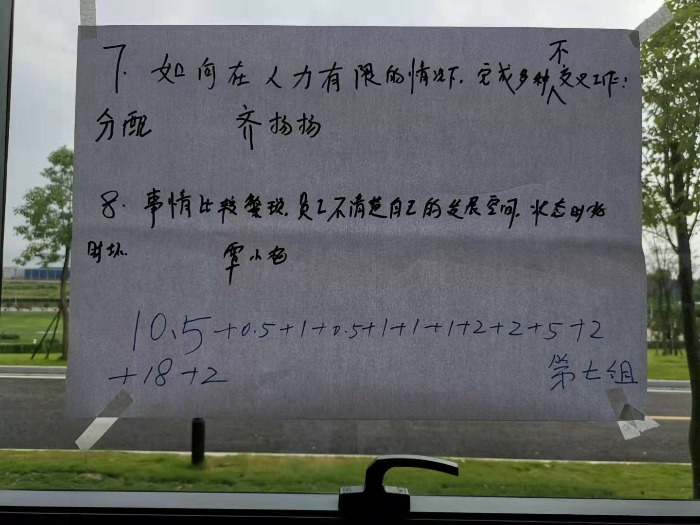 7. 如何在人力有限的情况下,完成多种不交叉工作:
人
分配 齐扬扬
8. 事情比较繁琐,员工不清楚自己的发展空间,状态时好
时坏. 覃小
10.5+0.5+1+0.5+1+1+1+2+2+5+2
+18+2 第七组